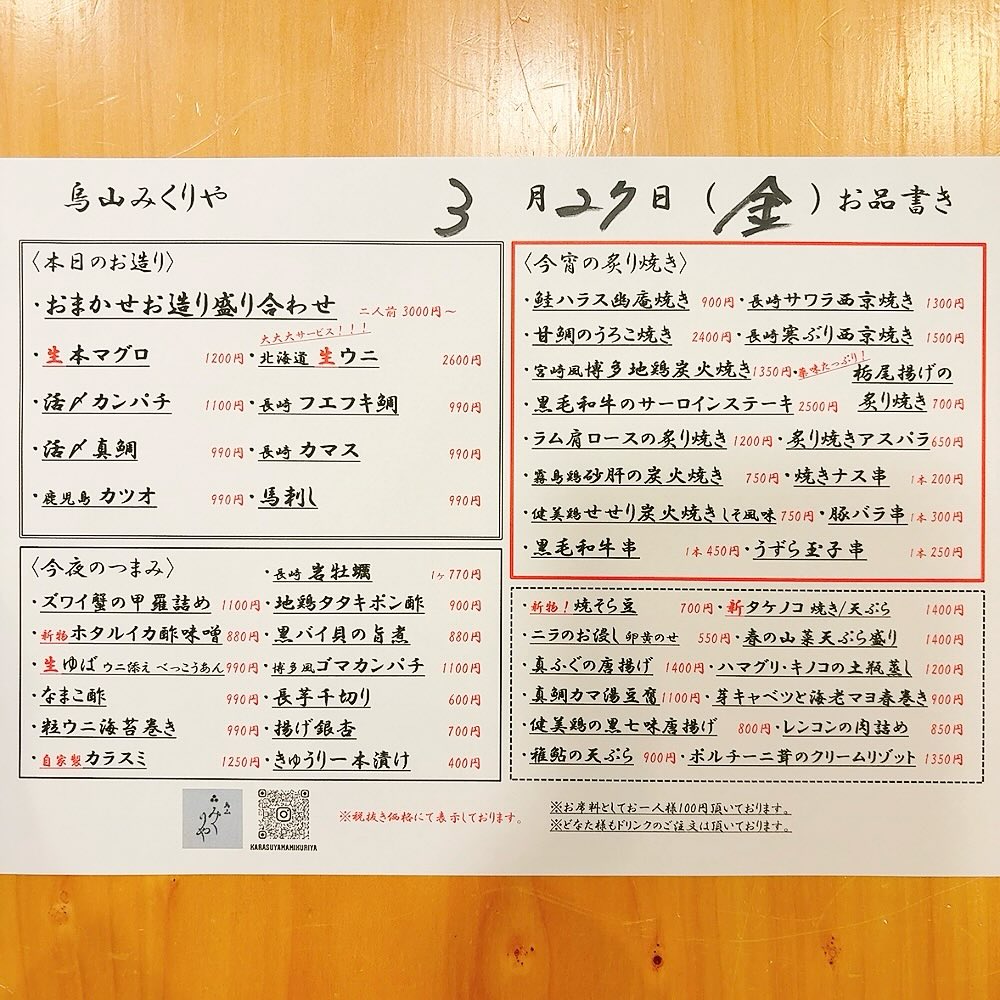 烏山みくりや 3月27日（金）お品書き
〈本日のお造り〉
・おまかせお造り盛り合わせ 二人前 3000円～
大大大サービス！！！
・生本マグロ 1200円・北海道 生ウニ 2600円
・活〆カンパチ 1100円・長崎 フエフキ鯛 990円
・活〆真鯛 990円・長崎 カマス 990円
・鹿児島 カツオ 990円・馬刺し 990円
〈今夜のつまみ〉 ・長崎 岩牡蠣 1ヶ770円
・ズワイ蟹の甲羅詰め 1100円・地鶏タタキポン酢 900円
・新物ホタルイカ酢味噌 880円・黒バイ貝の旨煮 880円
・生ゆば ウニ添え べっこうあん 990円・博多風ゴマカンパチ 1100円
・なまこ酢 990円・長芋千切り 600円
・粒ウニ海苔巻き 990円・揚げ銀杏 700円
・自家製カラスミ 1250円・きゅうり一本漬け 400円
〈今宵の炙り焼き〉
・鮭ハラス幽庵焼き 900円・長崎サワラ西京焼き 1300円
・甘鯛のうろこ焼き 2400円・長崎寒ぶり西京焼き 1500円
・宮崎風博多地鶏炭火焼き 1350円・薬味たっぷり！栃尾揚げの
・黒毛和牛のサーロインステーキ 2500円 炙り焼き 700円
・ラム肩ロースの炙り焼き 1200円・炙り焼きアスパラ 650円
・霧島鶏砂肝の炭火焼き 750円・焼きナス串 1本200円
・健美鶏せせり炭火焼き しそ風味 750円・豚バラ串 1本300円
・黒毛和牛串 1本450円・うずら玉子串 1本250円
・新物！焼そら豆 700円・新タケノコ 焼き/天ぷら 1400円
・ニラのお浸し 卵黄のせ 550円・春の山菜天ぷら盛り 1400円
・真ふぐの唐揚げ 1400円・ハマグリ・キノコの土瓶蒸し 1200円
・真鯛カマ湯豆腐 1100円・芽キャベツと海老マヨ春巻き 900円
・健美鶏の黒七味唐揚げ 800円・レンコンの肉詰め 850円
・稚鮎の天ぷら 900円・ポルチーニ茸のクリームリゾット 1350円
みくりや
KARASUYAMAMIKURIYA
※税抜き価格にて表示しております。
※お席料としてお一人様100円頂いております。
※どなた様もドリンクのご注文は頂いております。